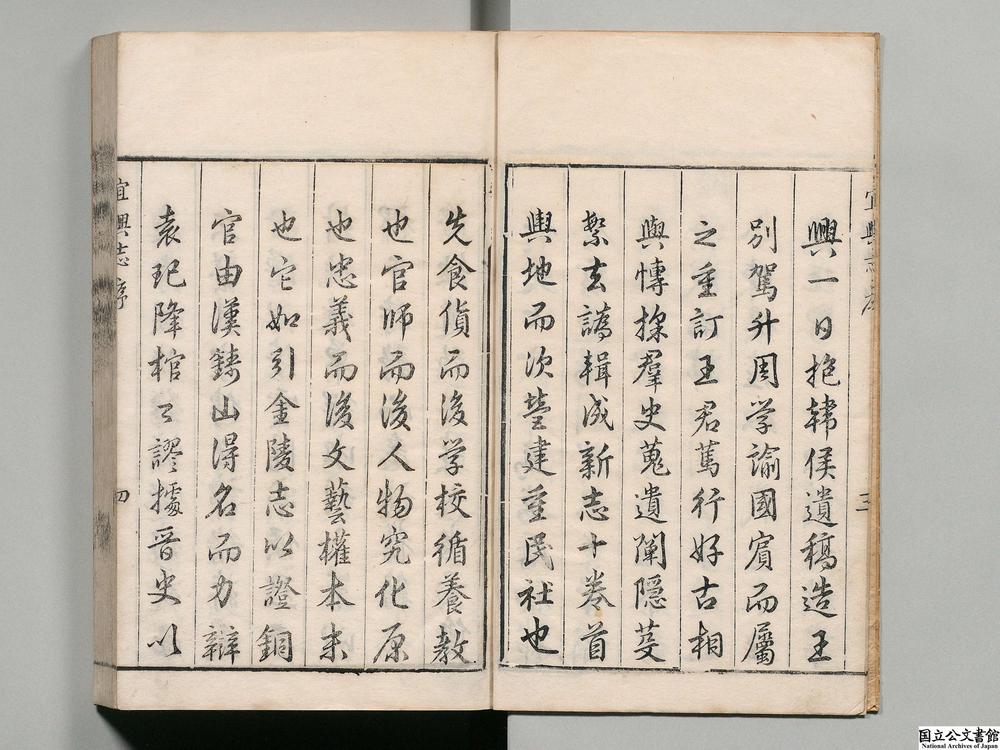 興一日抱韓侯遺稿造王
別駕升周学諭國賓而屬
之重訂王君篤行好古相
與博採羣史蒐遺闡隠芟
繁去譌輯成新志十卷首
輿地而次營建重民社也
先食貨而後学校循養教
也官師而後人物究化原
也忠義而後文藝權本末
也它如引金陵志以證銅
官由漢鑄山得名而力辯
袁玘降棺之謬據晉史以
宜興志序
三
宜興志序
四
国立公文書館
National Archives of Japan